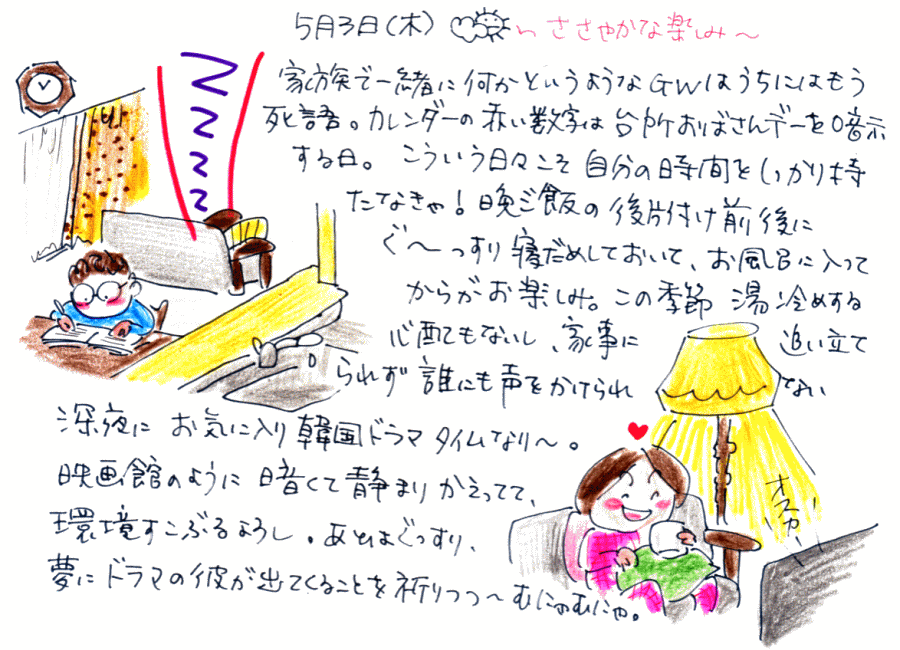 5月3日(木) 〜ささやかな楽しみ〜
家族で一緒に何かというようなGWはうちにはもう
死語。カレンダーの赤い数字は台所おばさんデーを暗示
する日。 こういう日々こそ自分の時間をしっかり持
たなきゃ!晩ご飯の後片付け前後に
ぐ〜っすり寝だめしておいて、お風呂に入って
からがお楽しみ。この季節 湯冷めする
心配もないし、家事に 追い立て
られず誰にも声をかけられ ない
深夜に お気に入り韓国ドラマ タイムなり〜。
映画館のように暗くて静まりかえってて、
環境すこぶるよろし。あとはぐっすり、
夢にドラマの彼が出てくることを祈りつつ〜むにゃむにゃ。
Z
Z
Z
Z
Z